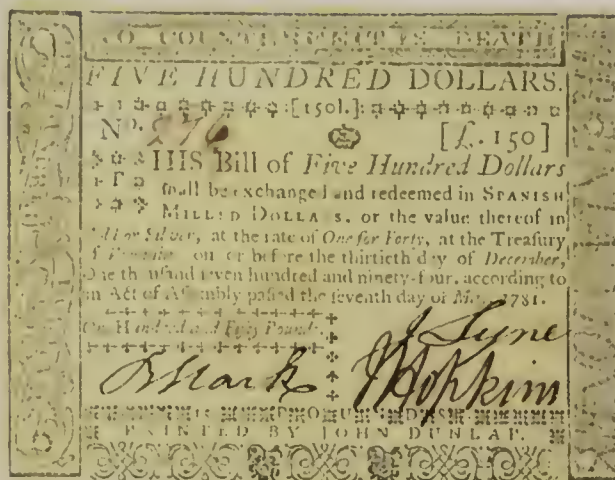 TO COUNTERFEIT IS DEATH
FIVE HUNDRED DOLLARS.
[150l.]
No. 276
[£.150]
THIS Bill of Five Hundred Dollars
shall be exchanged and redeemed in SPANISH
MILLED DOLLARS, or the value thereof in
Gold or Silver, at the rate of One for Forty, at the Treasury
of on or before the thirtieth day of December,
One thousand seven hundred and ninety-four, according to
an Act of Assembly passed the seventh day of May, 1781.
One Hundred and Fifty Pounds
J Lyne
B Stark J Hopkins
POUNDS
PRINTED BY JOHN DUNLAP.